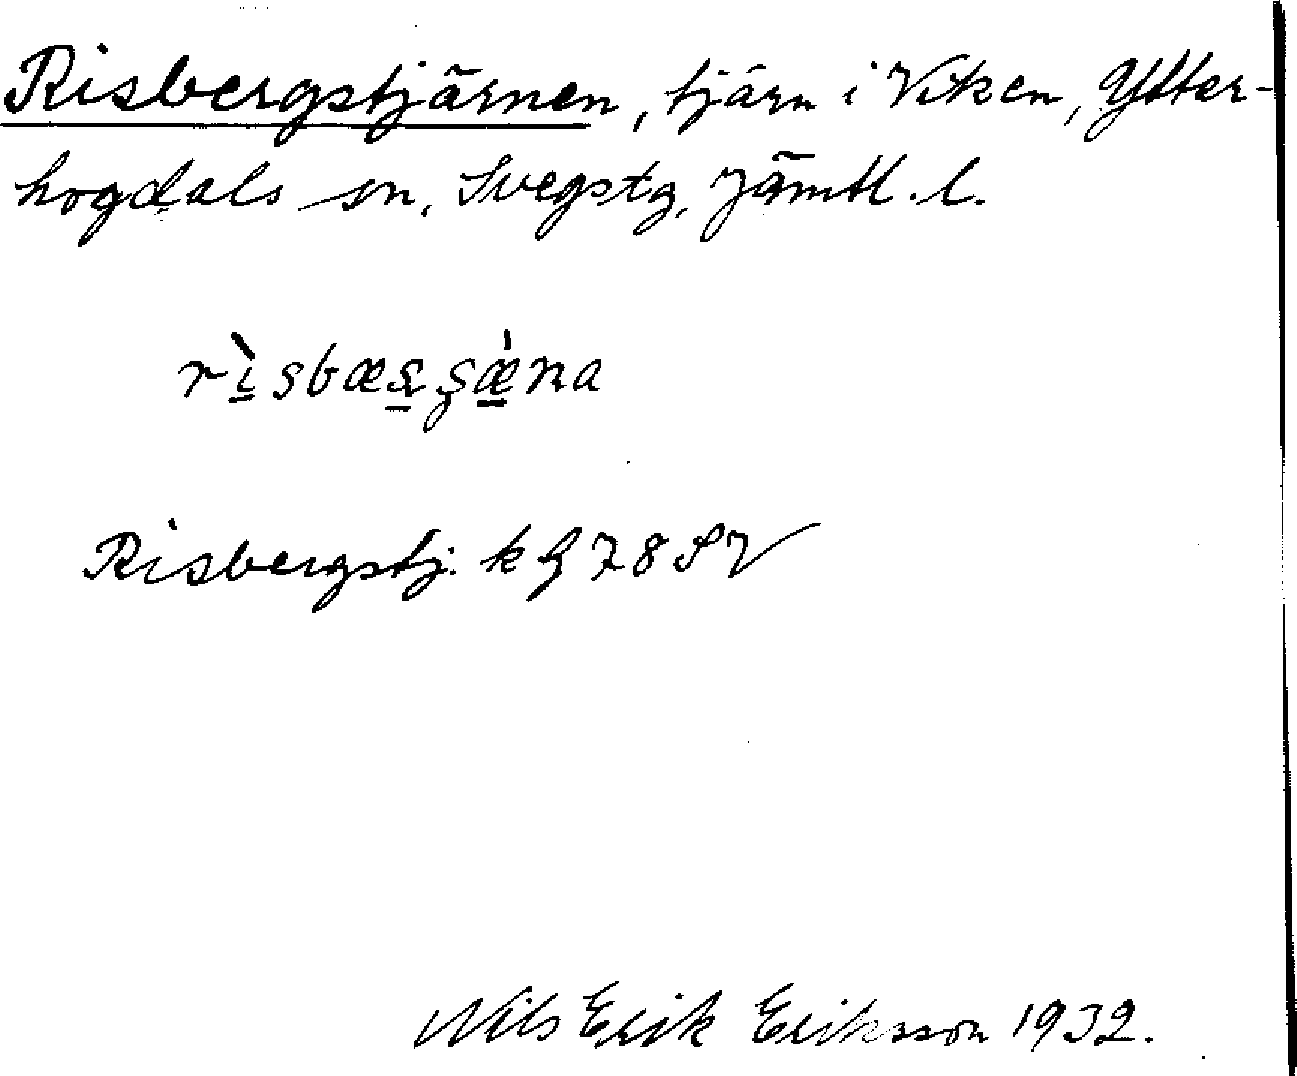 Risbergstjärnen, tjärn i Viken, Ytter-
hogdals sn, Svegs tg, Jämtl. l.
Risbergstj. k 78 SV
Nils Erik Eriksson 1932.